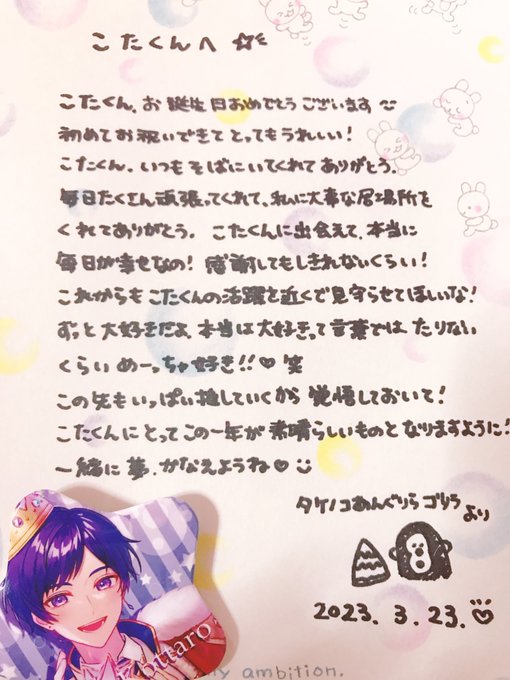 こたくんへ ☆
こたくん、お誕生日おめでとうございます
初めてお祝いできてとってもうれしい!
こたくん、いつもそばにいてくれてありがとう。
毎日たくさん頑張ってくれて、私に大事な居場所を
くれてありがとう。 こたくんに出会えて、本当に
毎日が幸せなの! 感謝してもしきれないくらい!
これからもこたくんの活躍を近くで見守らせてほしいな!
ずっと大好きだよ、本当は大好きって言葉では たりない
くらい めーっちゃ好き!!♡ 笑
この先もいっぱい推していくから 覚悟しておいて!
こたくんにとってこの一年が 素晴らしいものと なりますように!
一緒に 夢、かなえようね♡
タケノコあんぐりらゴリラ
より
2023. 3. 23. ♡
ottaro
my ambition.